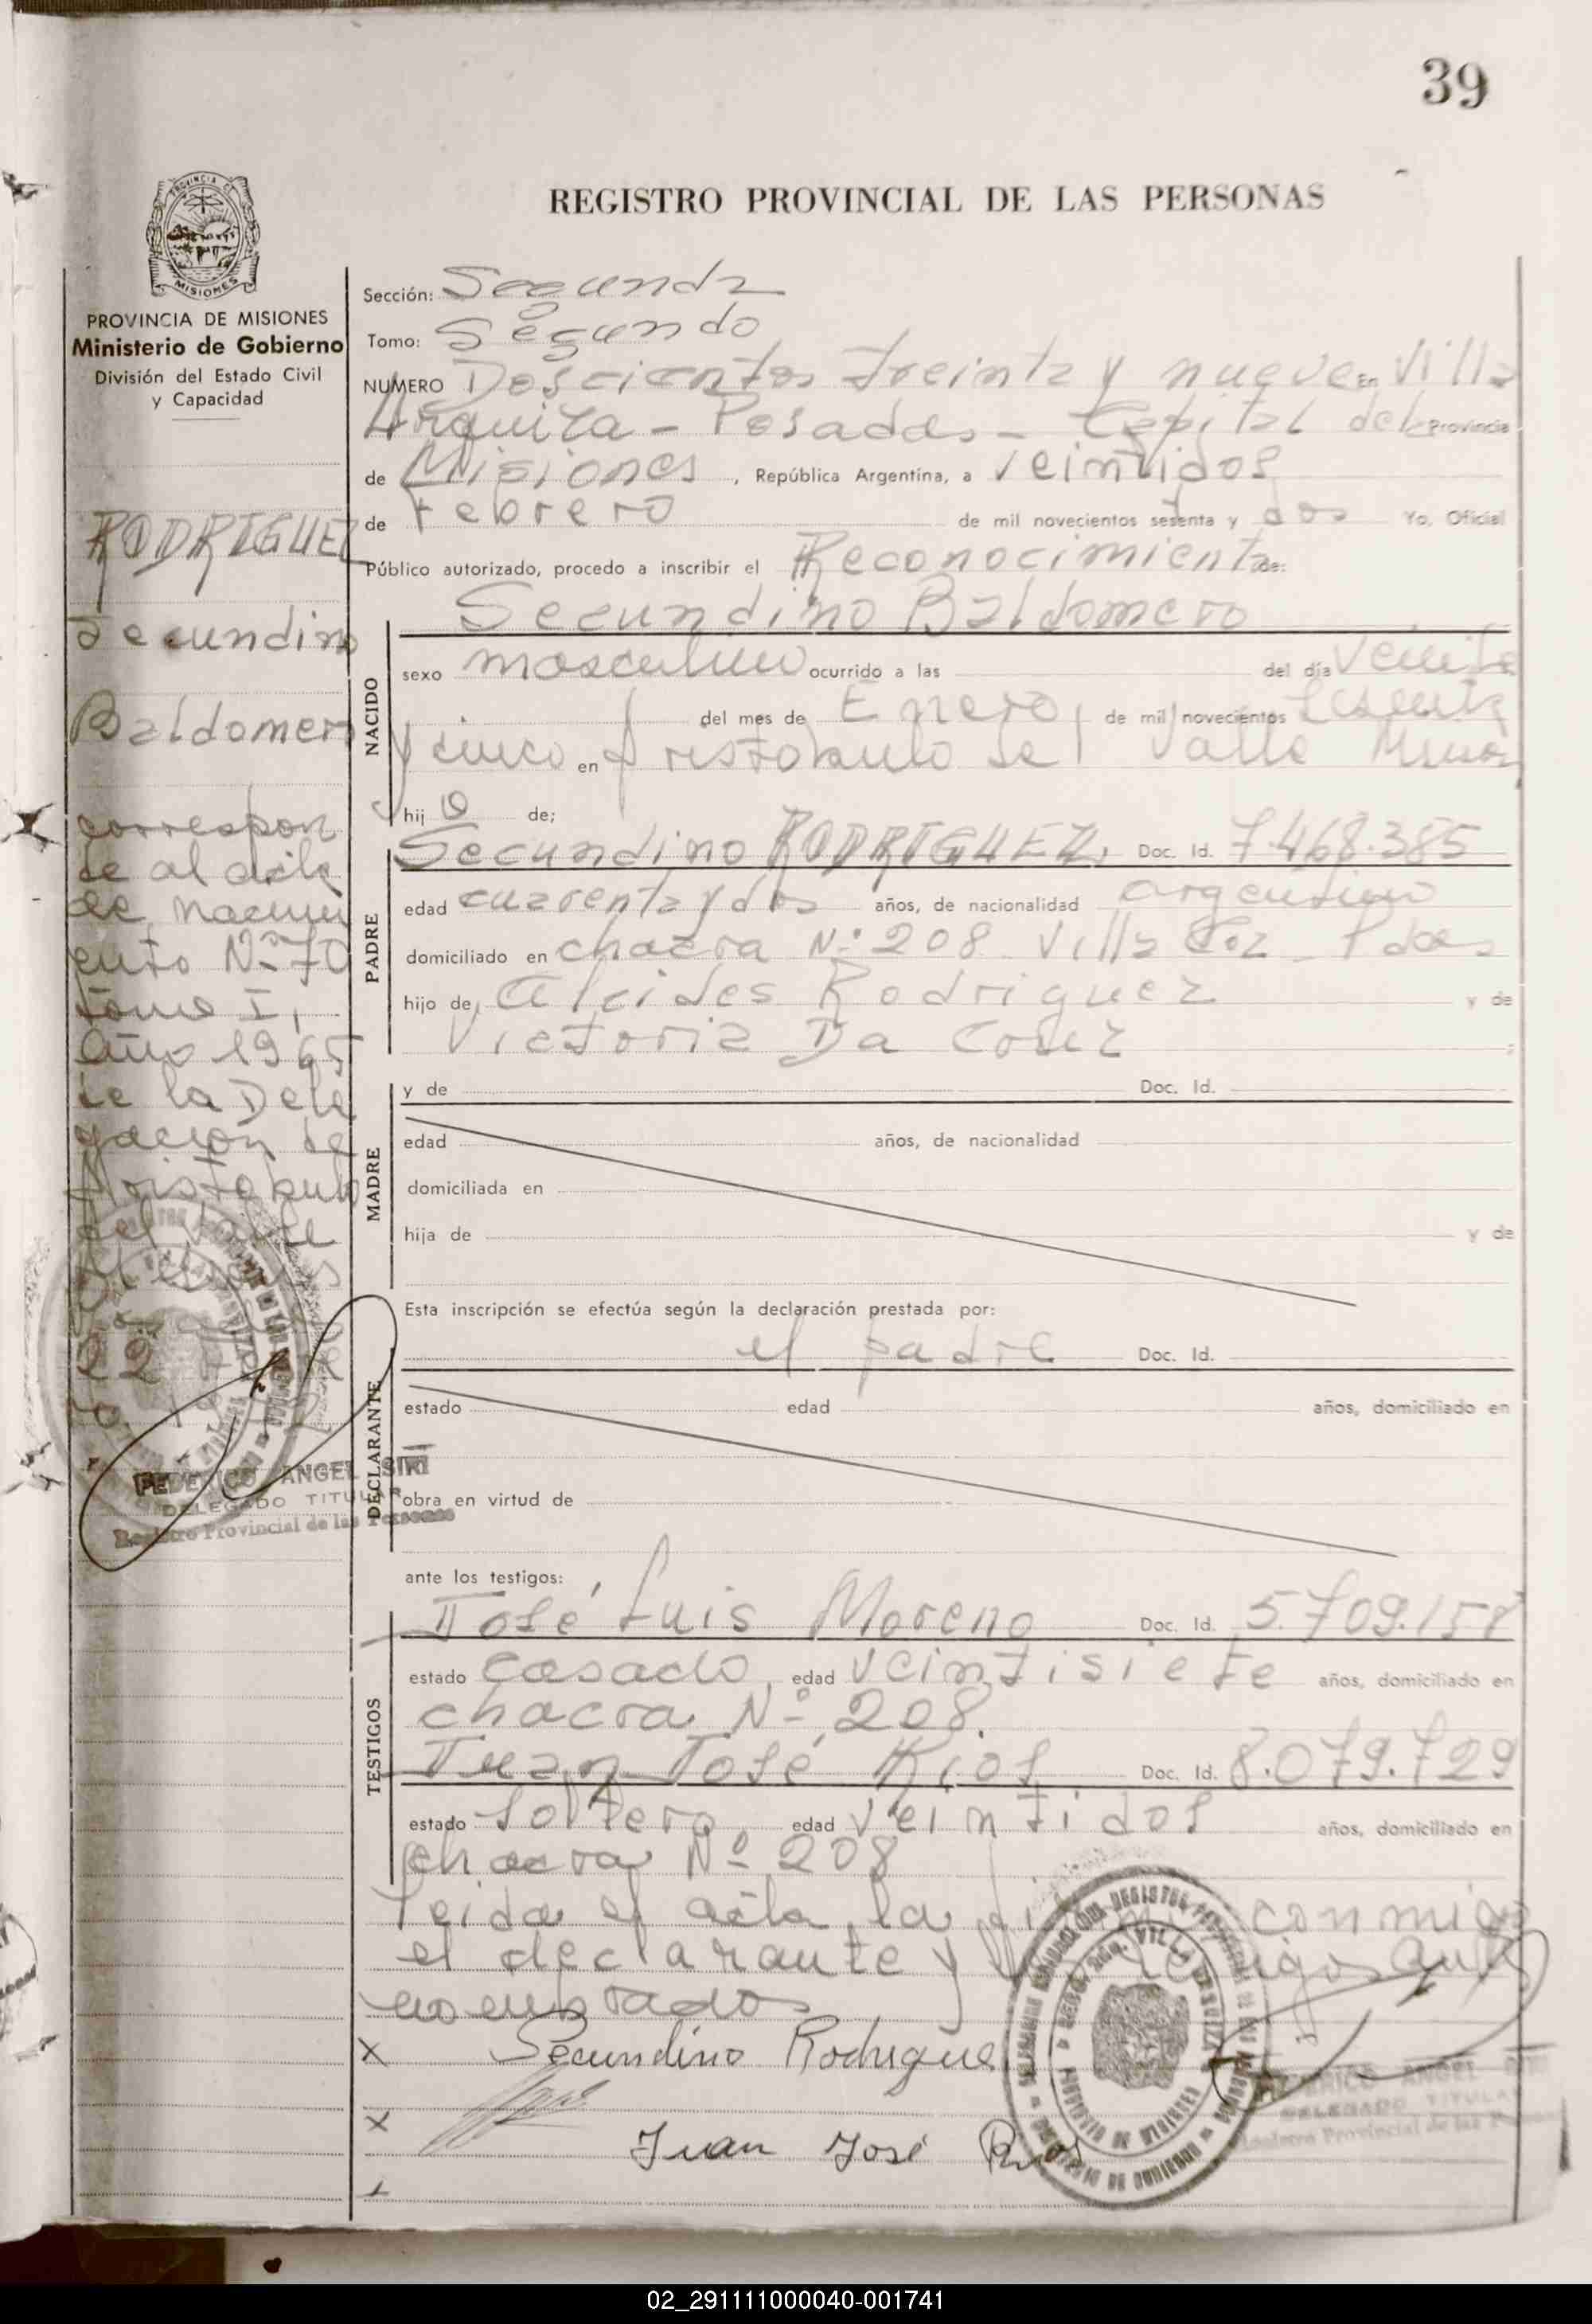 39
REGISTRO PROVINCIAL DE LAS PERSONAS
PROVINCIA DE MISIONES
Ministerio de Gobierno
División del Estado Civil
y Capacidad
RODRIGUEZ
Secundino
Baldomero
correspon
de al acta
de nacimi
ento Nº 70
tomo I,
Año 1965
de la Dele
gacion de
Aristobulo
del Valle
Misiones
22
FEDERICO ANGEL SIRI
DELEGADO TITULAR
Registro Provincial de las Personas
Sección: Segunda
Tomo: Segundo
NUMERO Doscientos treinta y nueve En Villa
Urquiza - Posadas - Capital de la Provincia
de Misiones, República Argentina, a veintidos
de Febrero de mil novecientos setenta y dos Yo, Oficial
Público autorizado, procedo a inscribir el Reconocimiento de:
Secundino Baldomero
NACIDO
sexo masculino ocurrido a las del día veinte
del mes de Enero de mil novecientos sesenta
y cinco en Aristobulo del Valle Misiones
hijo de;
PADRE
Secundino RODRIGUEZ. Doc. Id. 7.468.385
edad cuarenta y dos años, de nacionalidad argentino
domiciliado en chacra Nº 208 Villa Pdas
hijo de Alcides Rodriguez y de
Victoria Da
MADRE
y de Doc. Id.
edad años, de nacionalidad
domiciliada en
hija de y de
Esta inscripción se efectúa según la declaración prestada por:
DECLARANTE
el padre Doc. Id.
estado edad años, domiciliado en
obra en virtud de
ante los testigos:
TESTIGOS
José Luis Moreno Doc. Id. 5.709.158
estado casado, edad veintisiete años, domiciliado en
chacra Nº 208.
Juan José Rios Doc. Id. 8.079.729
estado soltero, edad veintidos años, domiciliado en
chacra Nº 208
leida el acta, la conmigo
el declarante y testigos ante
nombrados
x Secundino Rodrigue
x
Juan José Rios
FEDERICO ANGEL SIRI
DELEGADO TITULAR
Registro Provincial de las Personas
02_291111000040-001741